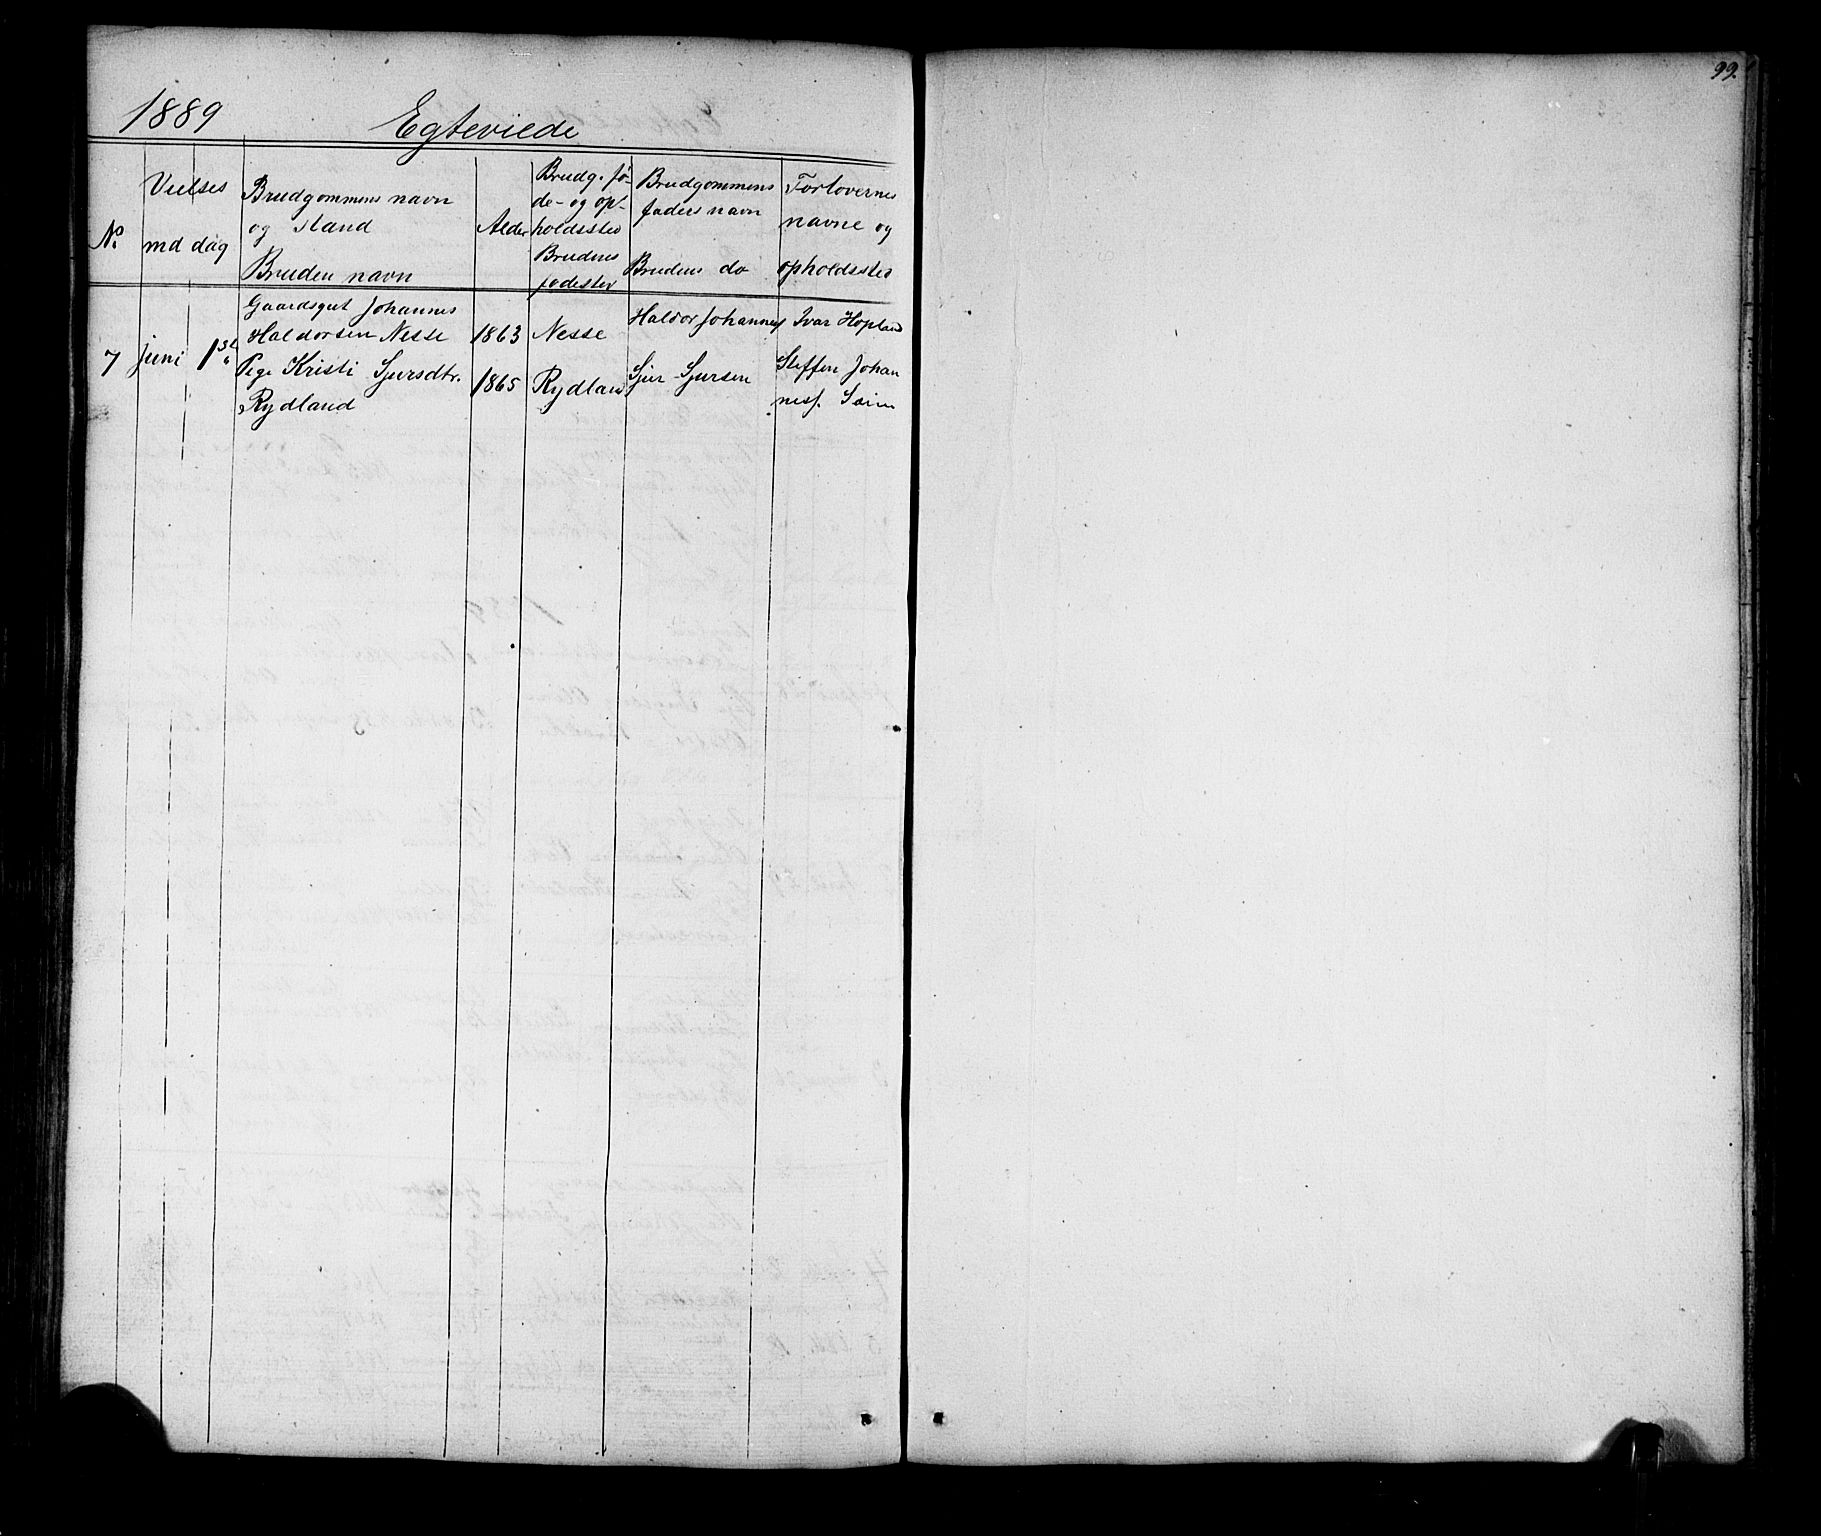 99.
1889 Egteviede
No. Vielses md dag
Brudgommens navn
og stand
Bruden navn
Alder
Brudg. fø-
de- og op-
holdssted
Brudens
fødested
Brudgommens
faders navn
Brudens do
Forlovernes
navne og
opholdssted
7 Juni 1
Gaardsgut Johannes
Haldorsen Nesse 1863 Nesse
Haldor Johannes
Ivar Hopland
Pige Kristi Sjursdtr.
Rydland 1865 Rydland
Sjur Sjursen
Steffen Johan
nesf.